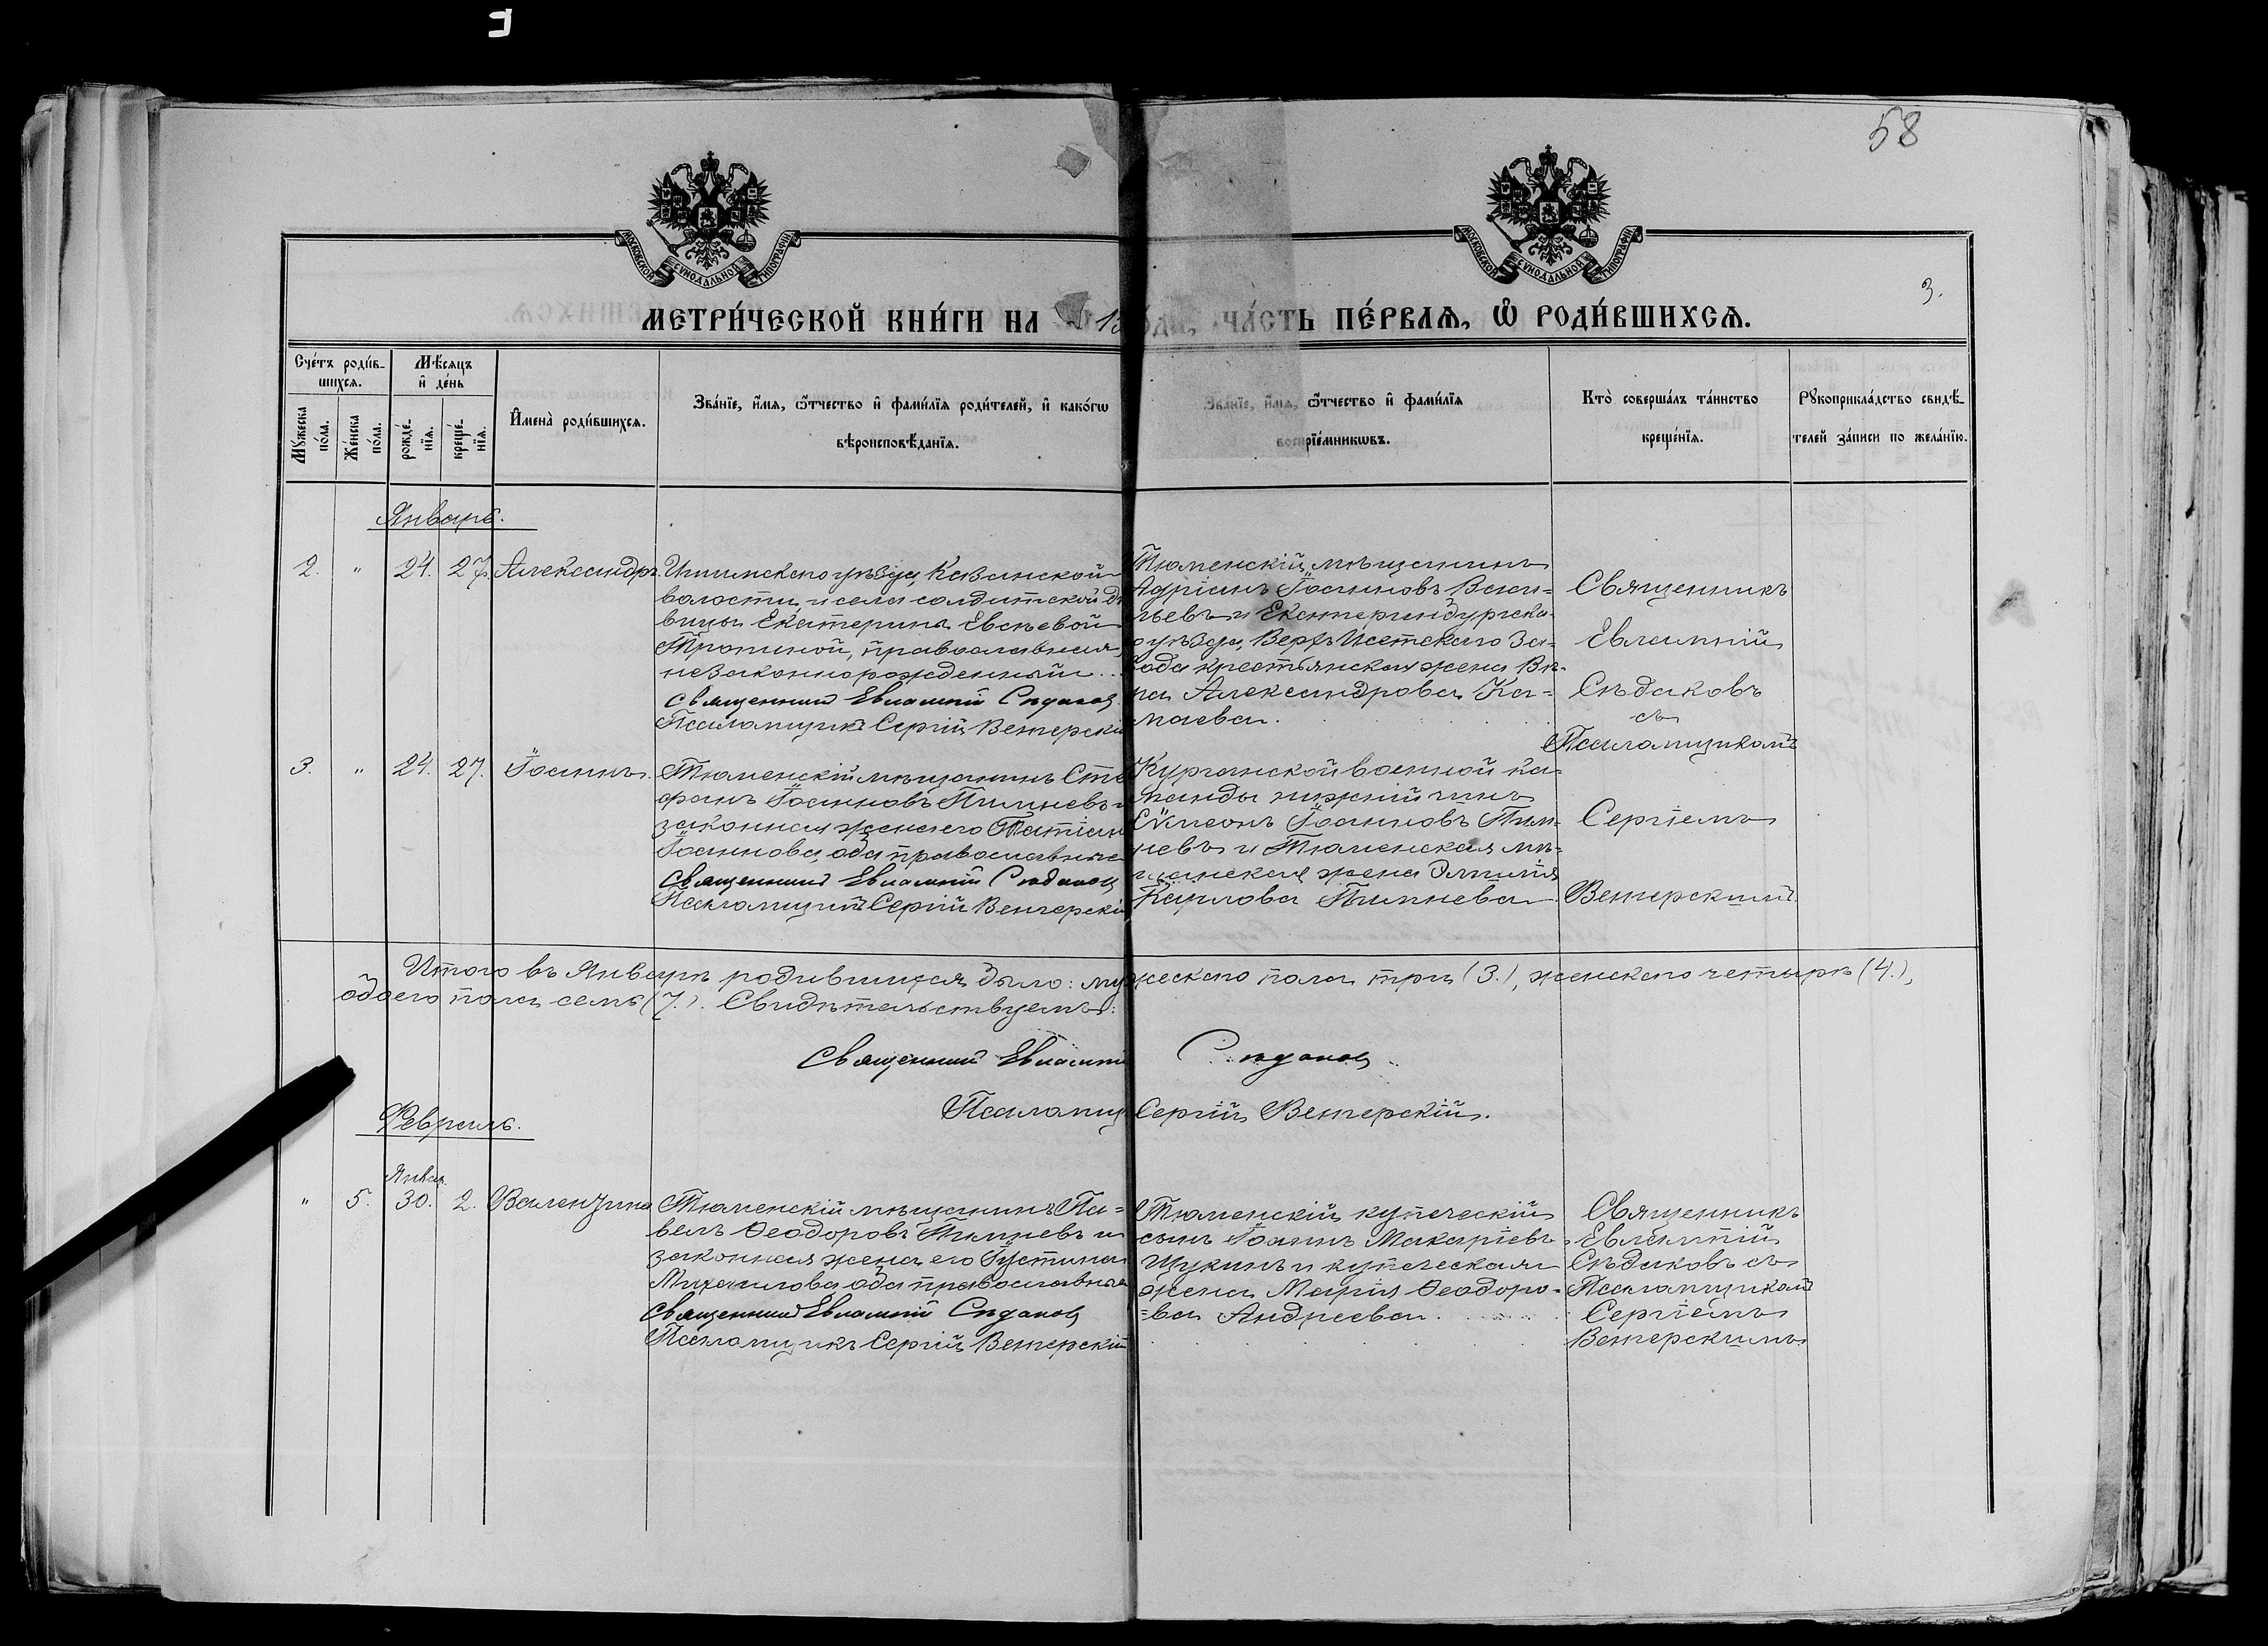 58
МОСКОВСКОЙ СѴНОДАЛЬНОЙ ТИПОГРАФІИ
МОСКОВСКОЙ СѴНОДАЛЬНОЙ ТИПОГРАФІИ
3.
МЕТРИ́ЧЕСКОЙ КНИ́ГИ НА
ЧА́СТЬ ПЕ́РВАѦ, Ѡ҆ РОДИ́ВШИХСѦ.
Сче́тъ роди́в-
шихсѧ.
Мѣ́сѧцъ
и҆ де́нь
Мꙋ́жеска
по́ла.
Же́нска
по́ла.
рожде́-
нїѧ.
креще́-
нїѧ.
И҆мена̀ роди́вшихсѧ.
Зва́нїе, и҆́мѧ, ѻ҆́тчество и҆ фами́лїѧ роди́телей, и҆ како́гѡ
вѣроисповѣ́данїѧ.
Зва́нїе, и҆́мѧ, ѻ҆́тчество и҆ фами́лїѧ
воспрїе́мникѡвъ.
Кто̀ соверша́лъ та́инство
креще́нїѧ.
Рꙋкоприкла́дство свидѣ́-
телей за́писи по жела́нїю.
Январь.
2. " 24. 27. Александръ.
Ишимскаго уѣзда, Казанской
волости и села солдатской дѣ
вицы Екатерина Евсѣевой
православная,
незаконнорожденный...
Священникъ Евлампій Сѣдаковъ
Псаломщикъ Сергій Венгерскій
Тюменскій мѣщанинъ
Адріанъ Іоанновъ Васи-
льевъ и Екатеринбургска-
о уѣзда, Верхъ Исетскаго За-
вода крестьянская жена Вѣ-
ра Александрова Ка-
маева.
Священникъ
Евлампій
Сѣдаковъ
съ
Псаломщикомъ
3. " 24. 27. Іоаннъ.
Тюменскій мѣщанинъ Сте
фанъ Іоанновъ Пимневъ и
законная жена его Татіан
Іоаннова, оба православные
Священникъ Евлампій Сѣдаковъ
Псаломщикъ Сергій Венгерскій
Курганской военной ка-
манды нижній чинъ
Сѵмеонъ Іоанновъ Пим-
невъ и Тюменская мѣ-
щанская жена Эмилія
Карлова Пимнева
Сергіемъ
Венгерскимъ.
Итого въ Январѣ родившихся было: мужескаго пола три (3.), женскаго четыре (4.),
обоего пола семь (7.). Свидѣтельствуемъ:
Священникъ Евлампій Сѣдаковъ
Псаломщ Сергій Венгерскій.
Февраль.
Январ.
" 5. 30. 2. Валентина
Тюменскій мѣщанинъ Па-
велъ Ѳеодоровъ Пимневъ и
законная жена его Іустина
Михаилова, оба православные
Священникъ Евлампій Сѣдаковъ
Псаломщикъ Сергій Венгерскій
Тюменскій купеческій
сынъ Іоаннъ Макаріевъ
Щукинъ и купеческая
жена Марія Ѳеодоро-
=ва Андреева.
Священникъ
Евлампій
Сѣдаковъ съ
Псаломщикомъ
Сергіемъ
Венгерскимъ.